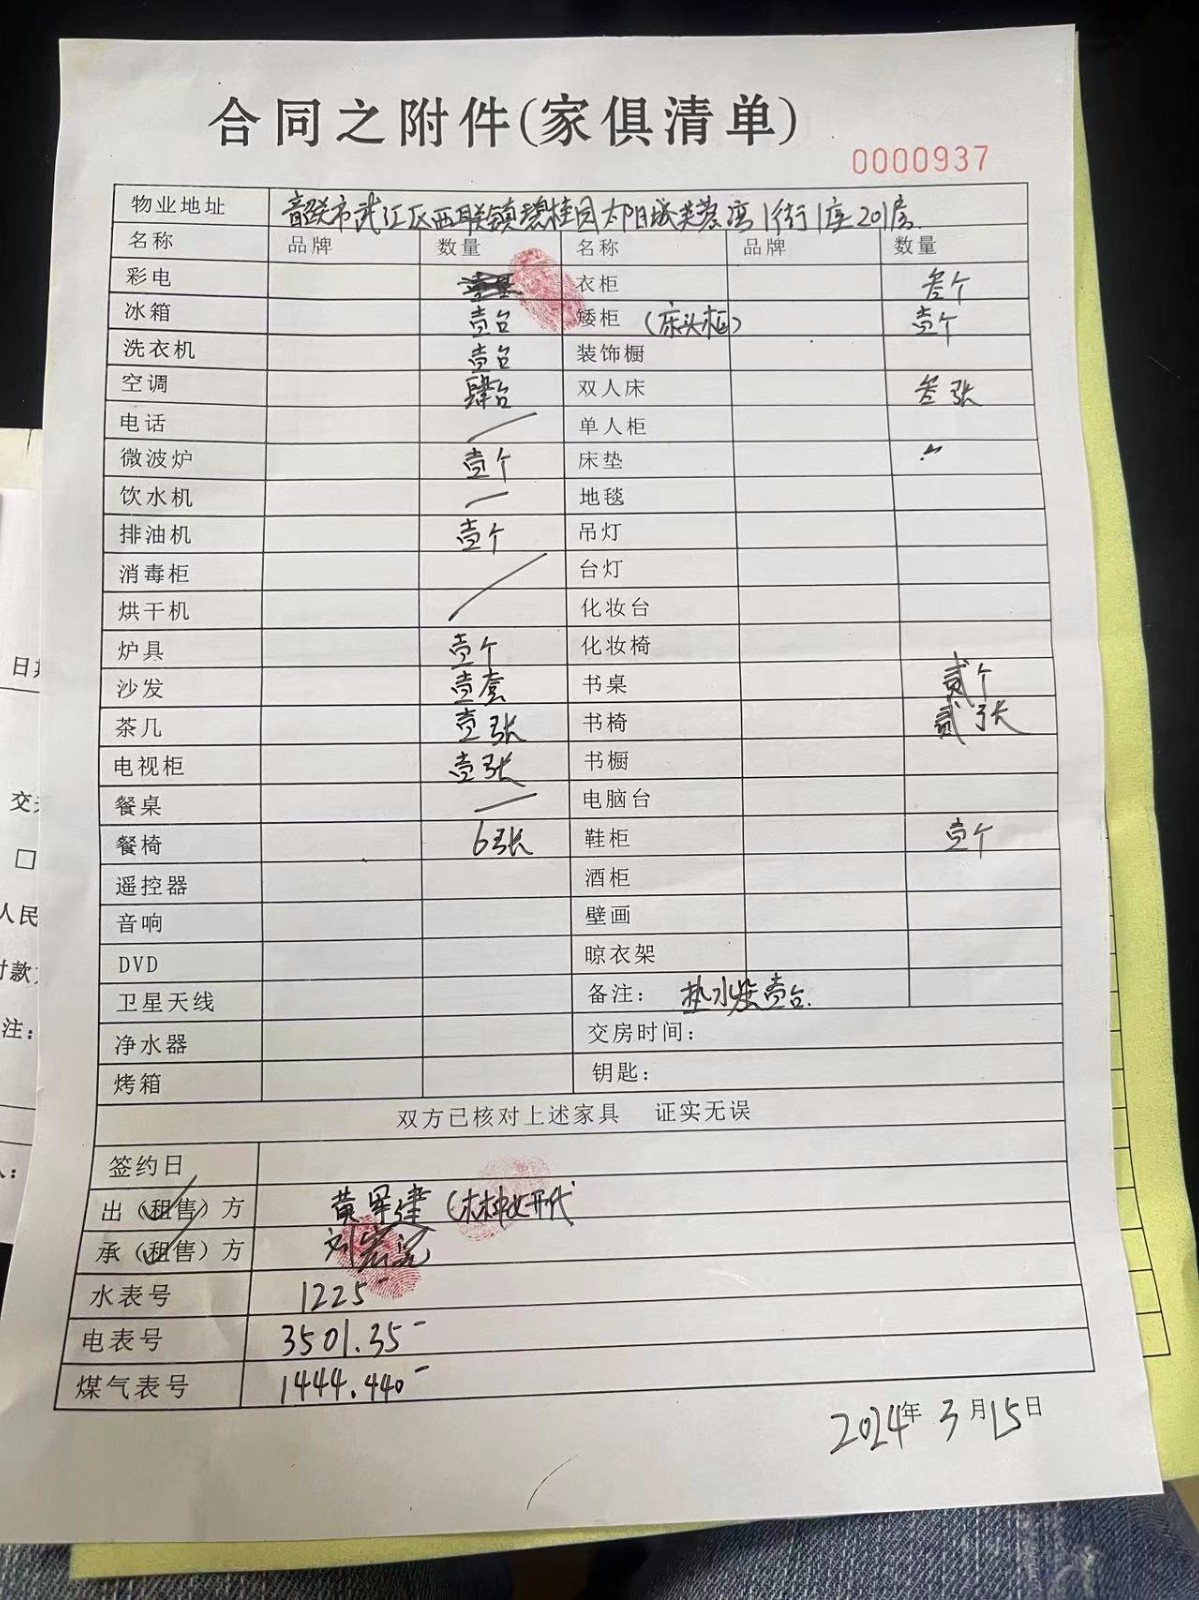 合同之附件(家俱清单)
0000937
物业地址 韶关市武江区西联镇碧桂园太阳城芙蓉湾1街1座201房
名称 品牌 数量 名称 品牌 数量
彩电 衣柜 叁个
冰箱 壹台 矮柜 (床头柜) 壹个
洗衣机 壹台 装饰橱
空调 肆台 双人床 叁张
电话 单人柜
微波炉 壹个 床垫
饮水机 地毯
排油机 壹个 吊灯
消毒柜 台灯
烘干机 化妆台
炉具 壹个 化妆椅
沙发 壹套 书桌 贰个
茶几 壹张 书椅 贰张
电视柜 壹张 书橱
餐桌 电脑台
餐椅 6张 鞋柜 壹个
遥控器 酒柜
音响 壁画
DVD 晾衣架
卫星天线 备注: 热水器壹台.
净水器 交房时间:
烤箱 钥匙:
双方已核对上述家具 证实无误
签约日
出(租售)方 黄军建
承(租售)方 刘
水表号 1225
电表号 3501.35
煤气表号 1444.440
2024年3月15日
日期
交
□
人民
付款
注:
人: